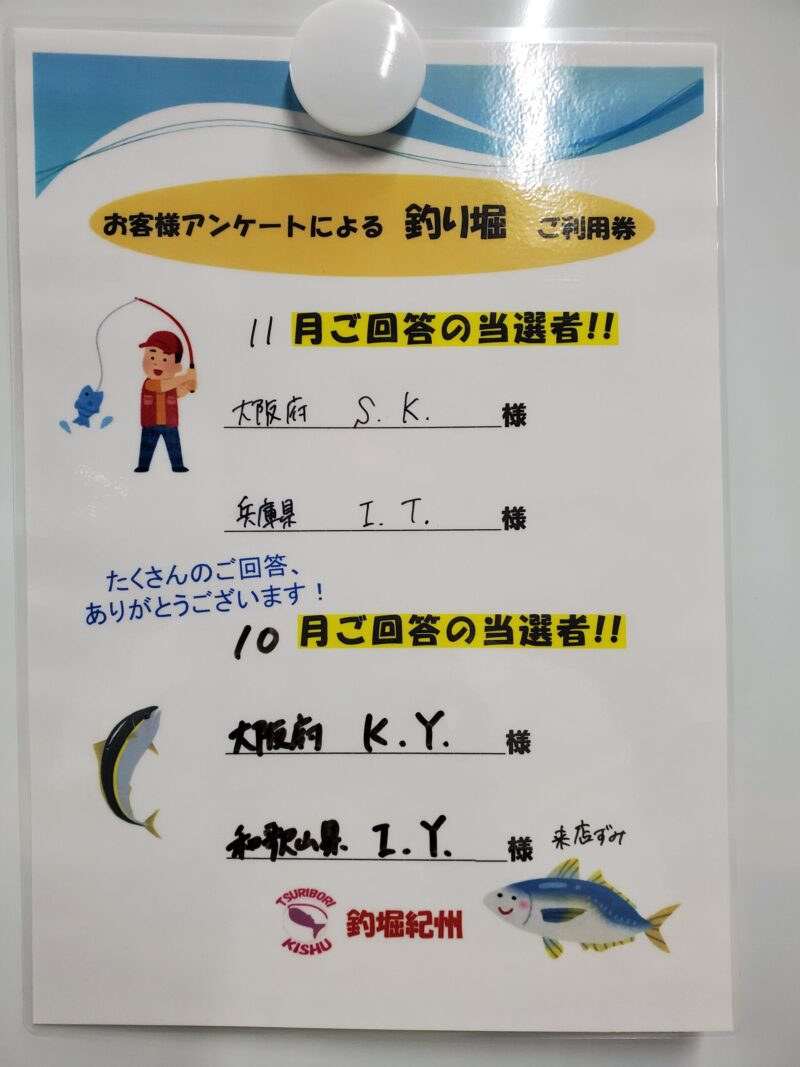 お客様アンケートによる 釣り堀 ご利用券
11月ご回答の当選者!!
大阪府 S.K. 様
兵庫県 I.T. 様
たくさんのご回答、
ありがとうございます！
10月ご回答の当選者!!
大阪府 K.Y. 様
和歌山県 I.Y. 様 来店ずみ
TSURIBORI
KISHU
釣堀紀州